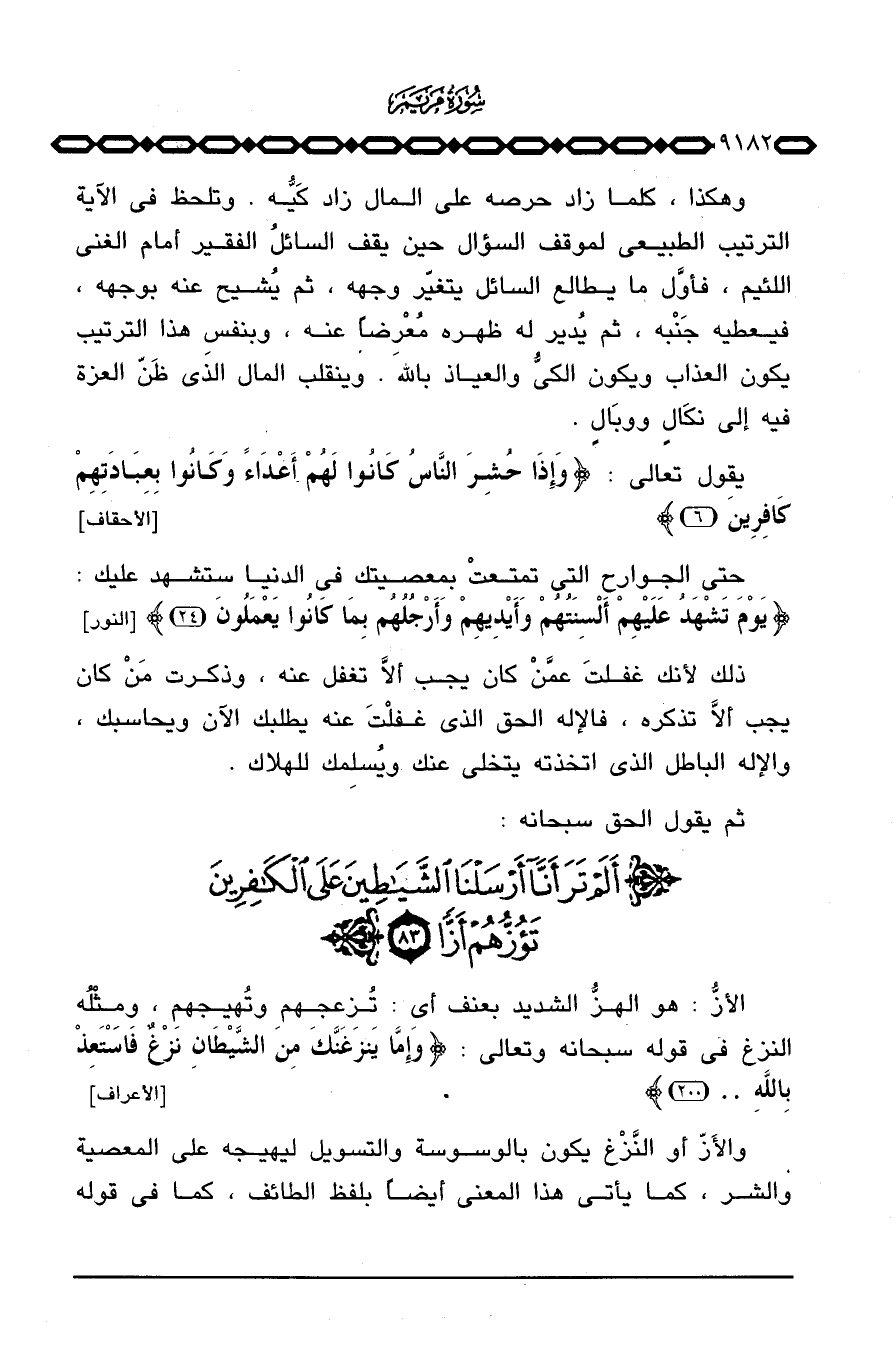 سورة مريم
٩١٨٢
وهكذا ، كلما زاد حرصه على المال زاد كَيُّه . وتلحظ فى الآية
الترتيب الطبيعى لموقف السؤال حين يقف السائلُ الفقير أمام الغنى
اللئيم ، فأوَّل ما يطالع السائل يتغيّر وجهه ، ثم يُشيح عنه بوجهه ،
فيعطيه جَنْبه ، ثم يُدير له ظهره مُعْرضاً عنه ، وبنفس هذا الترتيب
يكون العذاب ويكون الكىُّ والعياذ بالله . وينقلب المال الذى ظَنّ العزة
فيه إلى نكَالٍ ووبَالٍ .
يقول تعالى : ﴿ وَإِذَا حُشِرَ النَّاسُ كَانُوا لَهُمْ أَعْدَاءً وَكَانُوا بِعِبَادَتِهِمْ
كَافِرِينَ (٦) ﴾ [الأحقاف]
حتى الجوارح التى تمتعتْ بمعصيتك فى الدنيا ستشهد عليك :
﴿ يَوْمَ تَشْهَدُ عَلَيْهِمْ أَلْسِنَتُهُمْ وَأَيْدِيهِمْ وَأَرْجُلُهُم بِمَا كَانُوا يَعْمَلُونَ (٢٤) ﴾ [النور]
ذلك لأنك غفلتَ عمَّنْ كان يجب ألاَّ تغفل عنه ، وذكرت مَنْ كان
يجب ألاَّ تذكره ، فالإله الحق الذى غفلْتَ عنه يطلبك الآن ويحاسبك ،
والإله الباطل الذى اتخذته يتخلى عنك ويُسلمك للهلاك .
ثم يقول الحق سبحانه :
﴿ أَلَمْ تَرَ أَنَّآ أَرْسَلْنَا ٱلشَّيَٰطِينَ عَلَى ٱلْكَٰفِرِينَ
تَؤُزُّهُمْ أَزًّا ٨٣ ﴾
الأزُّ : هو الهزُّ الشديد بعنف أى : تُزعجهم وتُهيجهم ، ومثْلُه
النزغ فى قوله سبحانه وتعالى : ﴿ وَإِمَّا يَنزَغَنَّكَ مِنَ الشَّيْطَانِ نَزْغٌ فَاسْتَعِذْ
بِاللَّهِ .. (٢٠٠) ﴾ [الأعراف]
والأزّ أو النَّزْغ يكون بالوسوسة والتسويل ليهيجه على المعصية
والشر ، كما يأتى هذا المعنى أيضاً بلفظ الطائف ، كما فى قوله